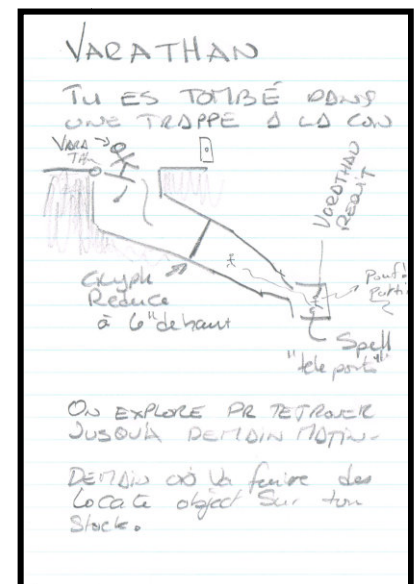 VARATHAN
TU ES TOMBÉ DANS
UNE TRAPPE A LA CON
VARA
THAN
VARATHAN
REDUIT
Glyph
Reduce
à 6" de haut
Pouf!
Parti
Spell
"teleports"
ON EXPLORE PR TE TROUVER
JUSQU'À DEMAIN MATIN.
DEMAIN on va faire des
Locate object sur ton
Stock.